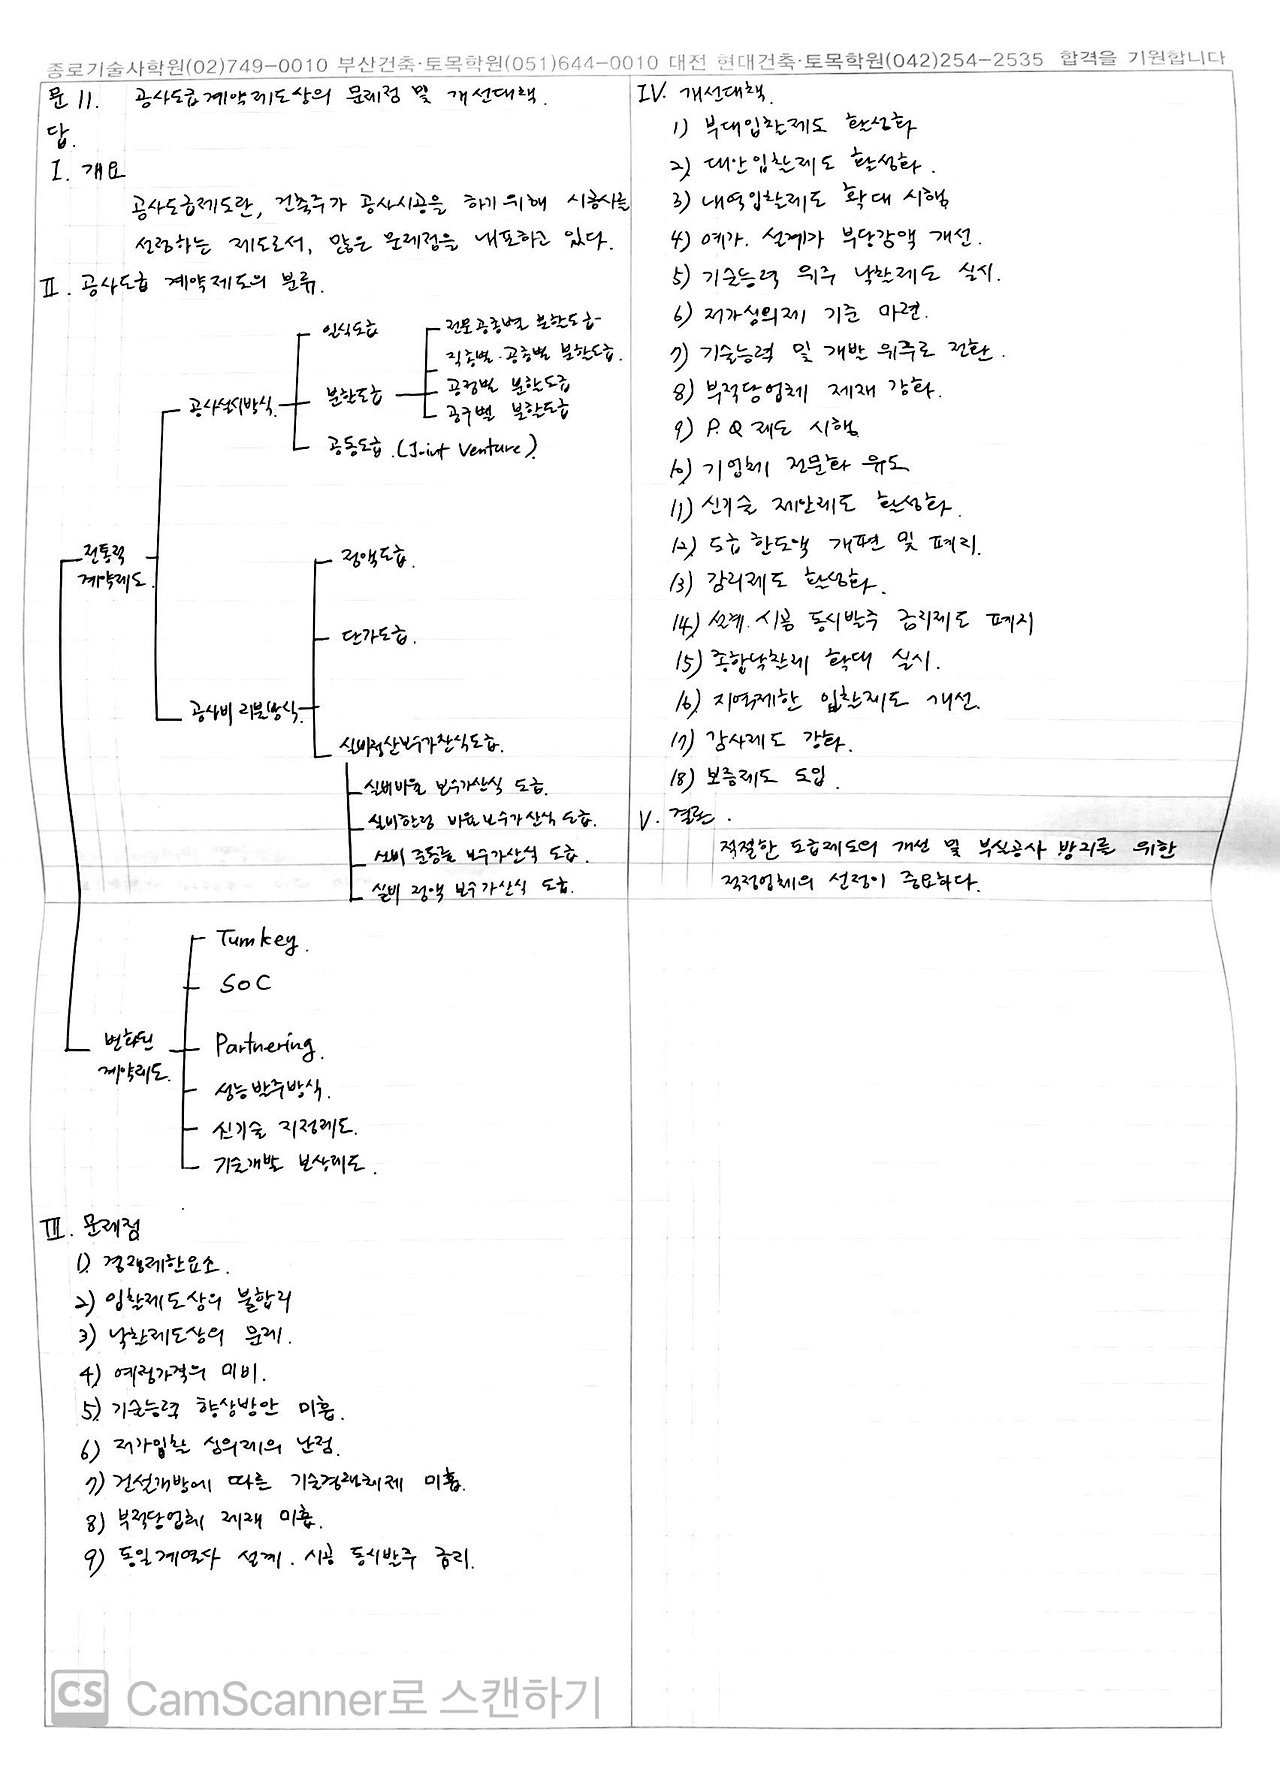 종로기술사학원(02)749-0010 부산건축·토목학원(051)644-0010 대전 현대건축·토목학원(042)254-2535 합격을 기원합니다
문 11. 공사도급계약제도상의 문제점 및 개선대책.
답.
I. 개요
공사도급제도란, 건축주가 공사시공을 하기 위해 시공사를
선정하는 제도로서, 많은 문제점을 내포하고 있다.
II. 공사도급 계약제도의 분류.
전통적
계약제도.
공사실시방식.
일식도급
분할도급
전문공종별 분할도급
직종별·공종별 분할도급.
공정별 분할도급
공구별 분할도급
공동도급.(Joint Venture).
공사비 지불방식.
정액도급.
단가도급.
실비정산보수가산식도급.
실비비율 보수가산식 도급.
실비한정 비율보수가산식 도급.
실비 준동률 보수가산식 도급.
실비 정액 보수가산식 도급.
변화된
계약제도.
Turnkey.
SOC
Partnering.
성능발주방식.
신기술 지정제도.
기술개발 보상제도.
III. 문제점
1) 경쟁제한요소.
2) 입찰제도상의 불합리
3) 낙찰제도상의 문제.
4) 예정가격의 미비.
5) 기술능력 향상방안 미흡.
6) 저가입찰 심의제의 난점.
7) 건설개방에 따른 기술경쟁체제 미흡.
8) 부적당업체 제재 미흡.
9) 동일계열사 설계. 시공 동시발주 금지.
IV. 개선대책.
1) 부대입찰제도 활성화
2) 대안입찰제도 활성화.
3) 내역입찰제도 확대 시행.
4) 예가. 설계가 부당감액 개선.
5) 기술능력 위주 낙찰제도 실시.
6) 저가심의제 기준 마련.
7) 기술능력 및 개발 위주로 전환.
8) 부적당업체 제재 강화.
9) P.Q 제도 시행.
10) 기업체 전문화 유도
11) 신기술 제안제도 활성화.
12) 도급 한도액 개편 및 폐지.
13) 감리제도 활성화.
14) 설계. 시공 동시발주 금지제도 폐지
15) 종합낙찰제 확대 실시.
16) 지역제한 입찰제도 개선.
17) 감사제도 강화.
18) 보증제도 도입.
V. 결론.
적절한 도급제도의 개선 및 부실공사 방지를 위한
적정업체의 선정이 중요하다.
CS CamScanner로 스캔하기